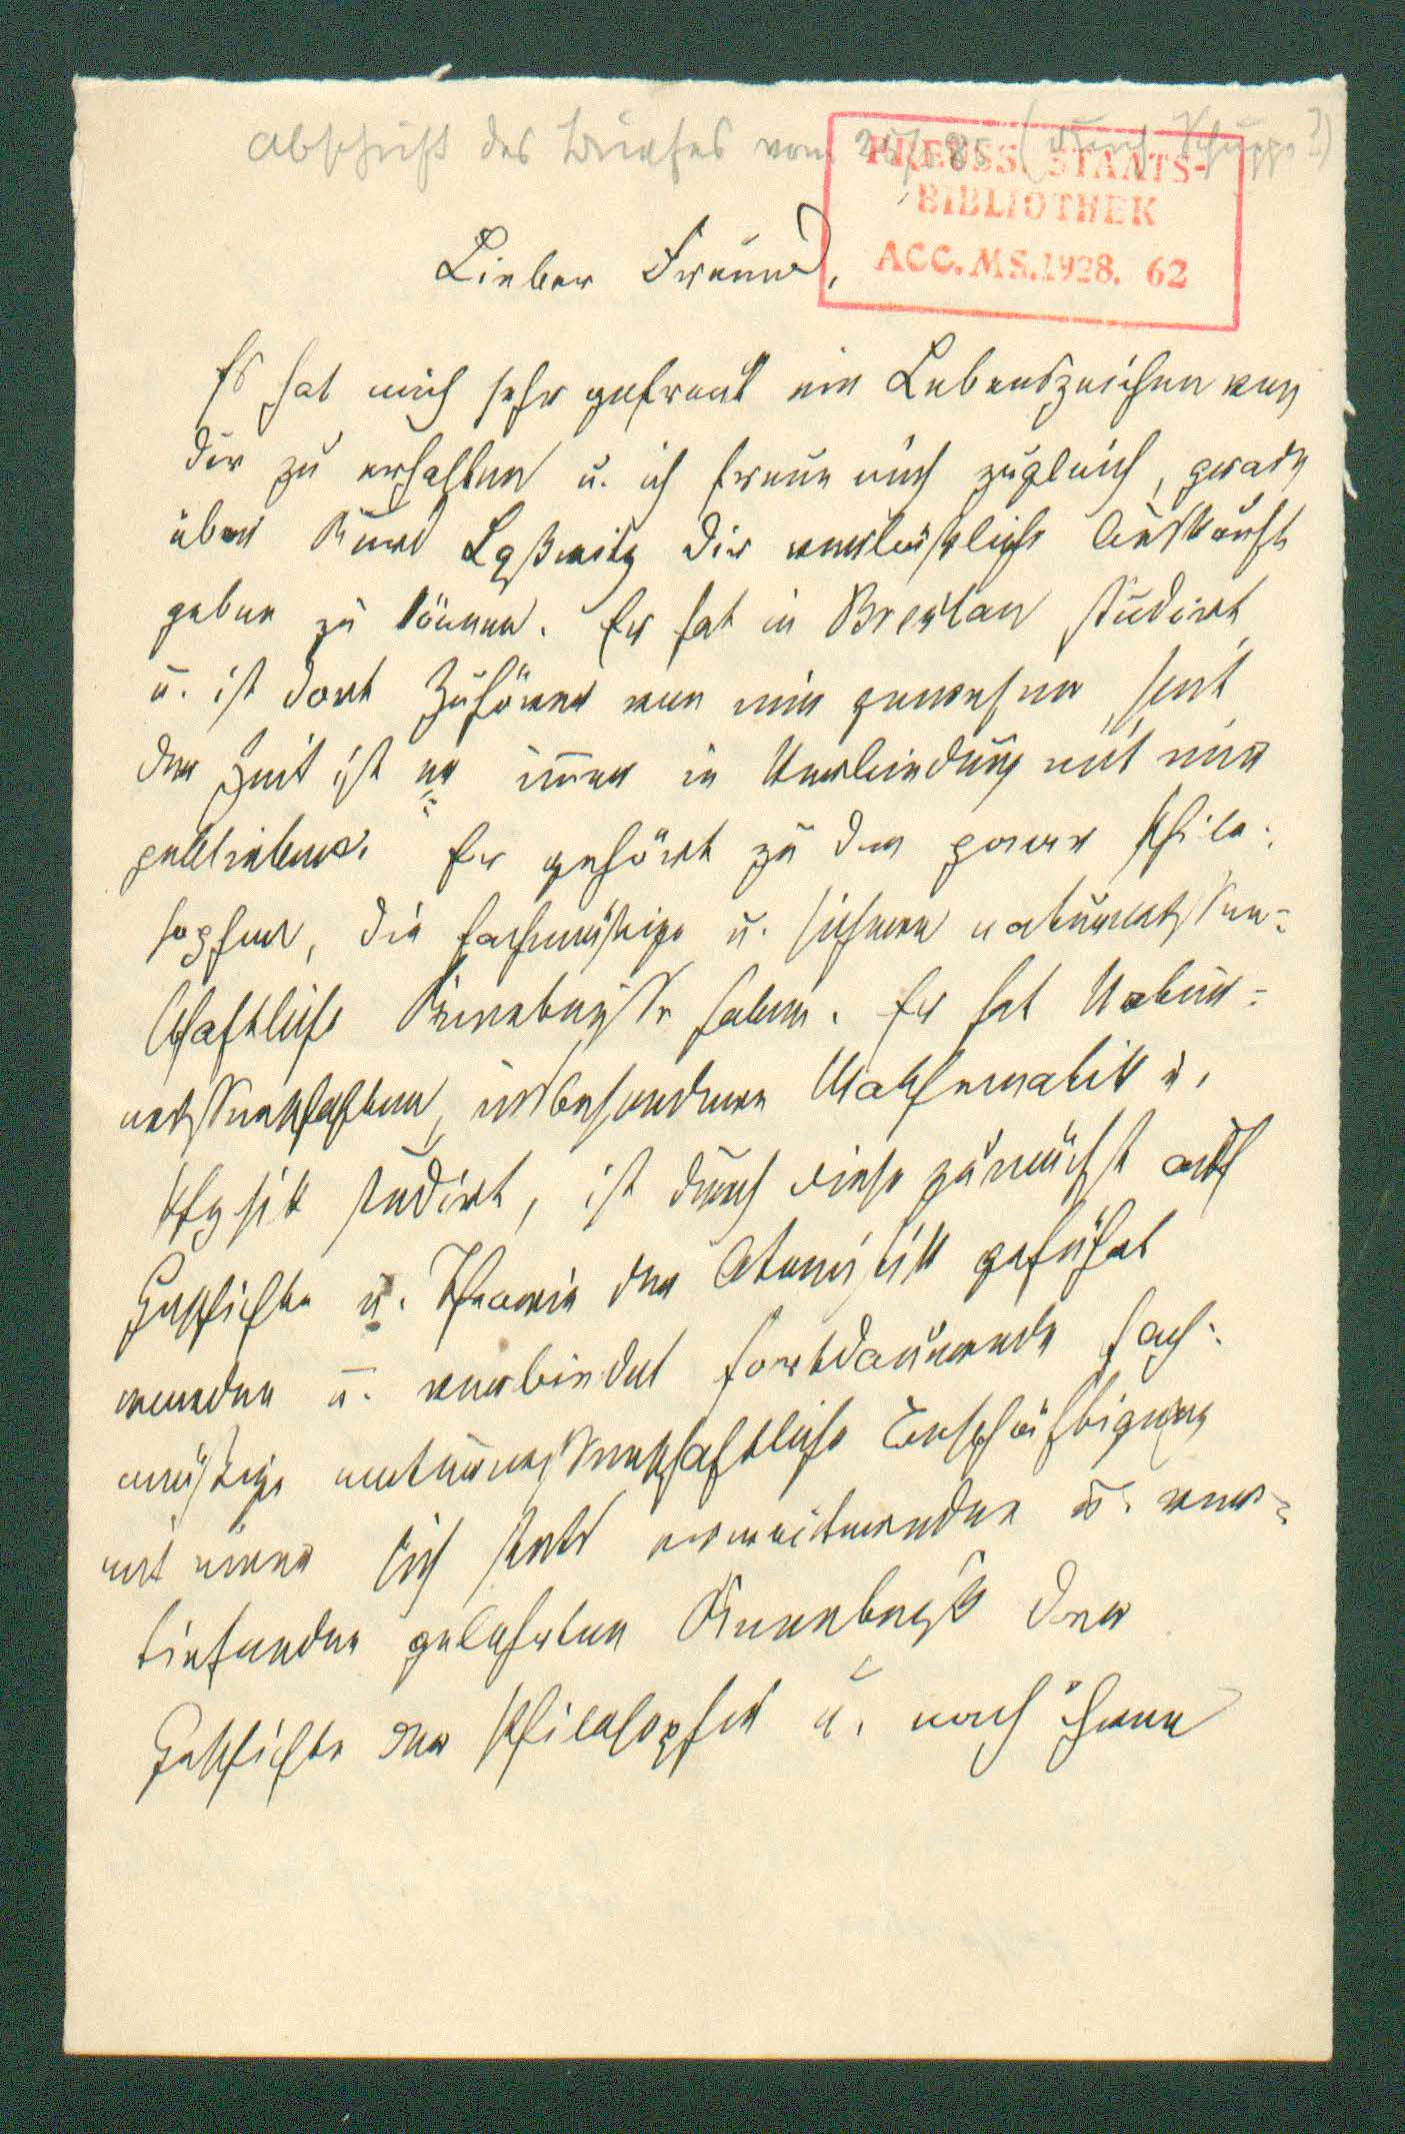 Abschrift des Briefes vom 85 (durch Schuppe?)
PREUSS. STAATS-
BIBLIOTHEK
ACC. MS. 1928. 62
Lieber Freund,
Es hat mich sehr gefreut ein Lebenszeichen von
dir zu erhalten u. ich freue mich zugleich, grade
über Kurd Laßwitz dir verläßliche Auskunft
geben zu können. Er hat in Breslau studirt
u. ist dort Zuhörer von mir gewesen, seit
der Zeit ist er immer in Verbindung mit mir
geblieben. Er gehört zu den Philo-
sophen, die fachmäßige u. sichere naturwissen-
schaftliche Kenntnisse haben. Er hat Natur-
wissenschaften, insbesondere Mathematik u.
Physik studirt, ist durch diese zunächst auf
Geschichte u. Theorie der Atomistik geführt
worden u. verbindet fortdauernde fach-
mäßige naturwissenschaftliche Beschäftigung
mit einer sich stets erweiternden u. ver-
tiefenden gelehrten Kenntniß der
Geschichte der Philosophie u. nach ihren